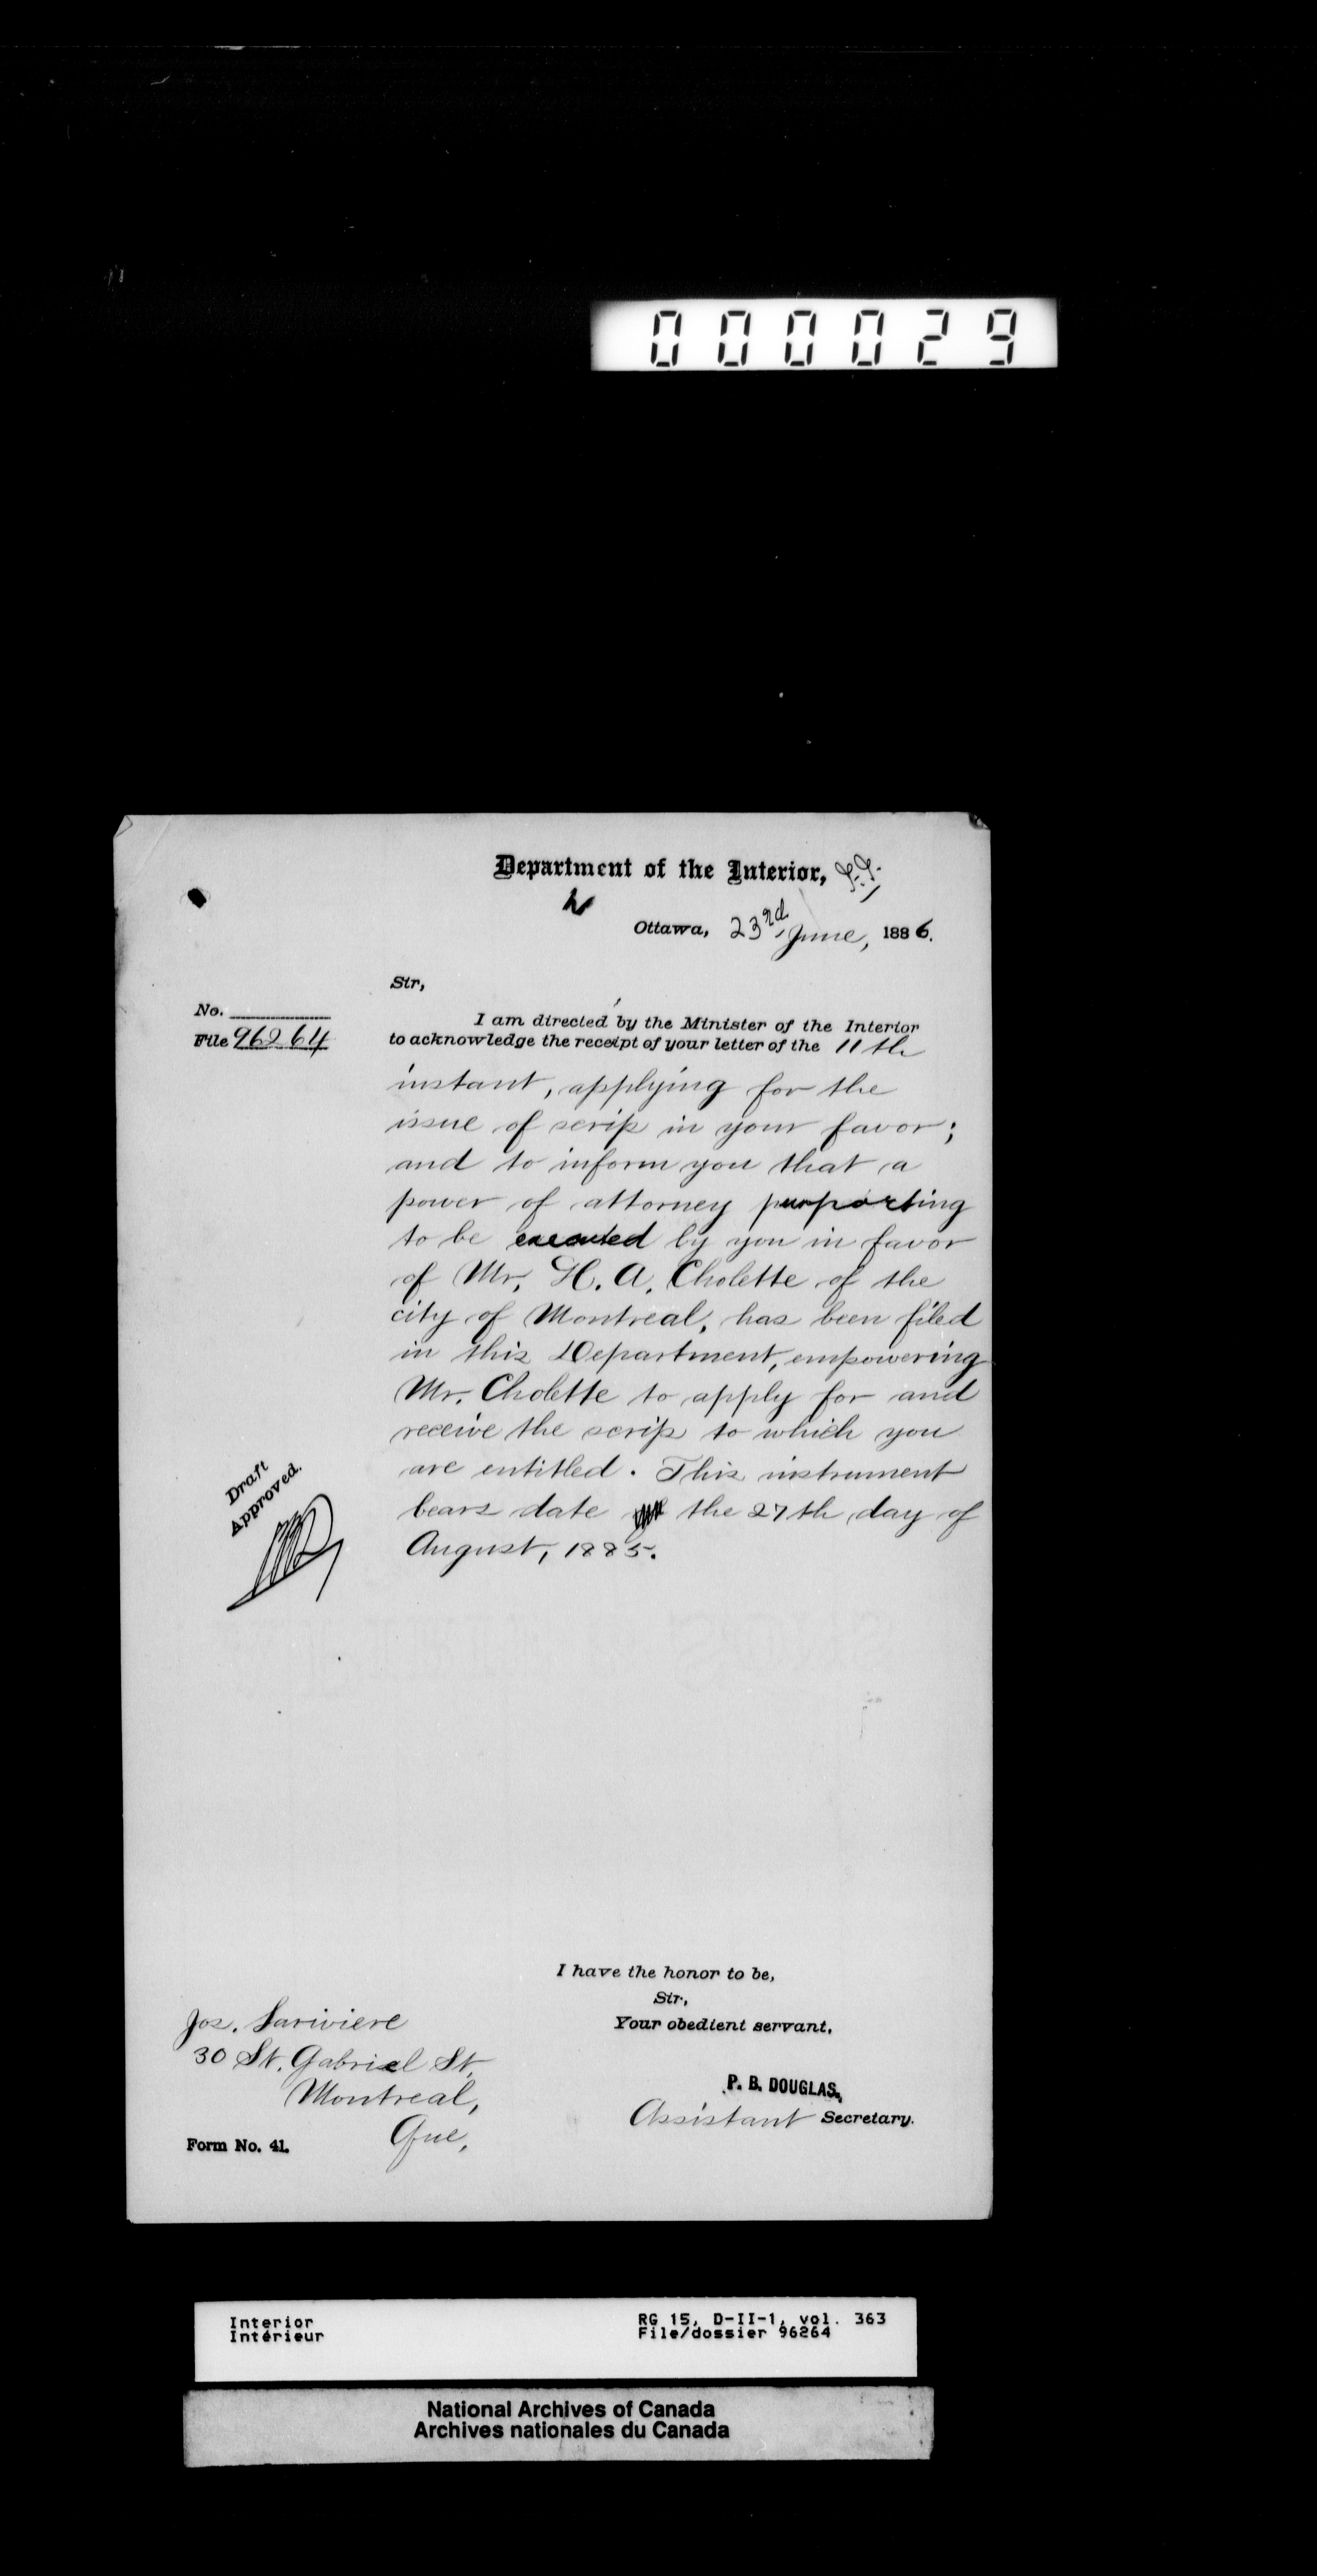 000029
Department of the Interior,
Ottawa, 23rd June, 1886.
Sir,
No.
File 96264
I am directed by the Minister of the Interior
to acknowledge the receipt of your letter of the 11th
instant, applying for the
issue of scrip in your favor;
and to inform you that a
power of attorney purporting
to be executed by you in favor
of Mr. H. A. Cholette of the
city of Montreal, has been filed
in this Department, empowering
Mr. Cholette to apply for and
receive the scrip to which you
are entitled. This instrument
bears date the 27th day of
August, 1885.
Draft
Approved.
I have the honor to be,
Sir,
Your obedient servant,
P. B. DOUGLAS,
Assistant Secretary.
Jos. Lariviere
30 St. Gabriel St,
Montreal,
Que,
Form No. 41.
Interior
Intérieur
RG 15, D-II-1, vol. 363
File/dossier 96264
National Archives of Canada
Archives nationales du Canada